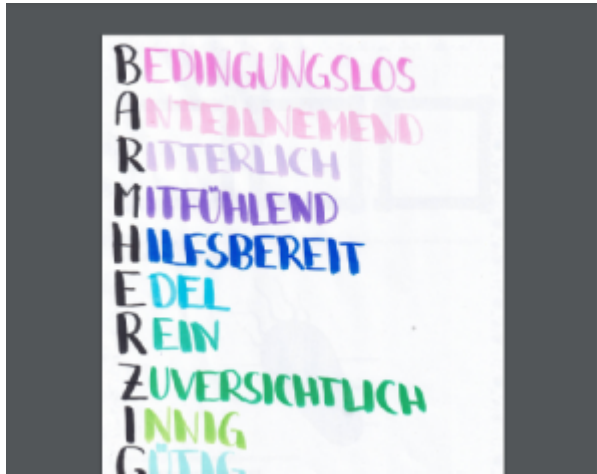 BEDINGUNGSLOS
ANTEILNEMEND
RITTERLICH
MITFÜHLEND
HILFSBEREIT
EDEL
REIN
ZUVERSICHTLICH
INNIG
GÜTIG